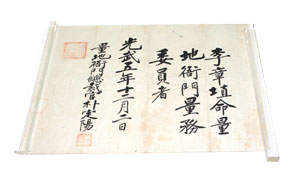 李章埴命量
地衙門量務
委員者
光武五年十二月二日
量地衙門總裁官朴定陽